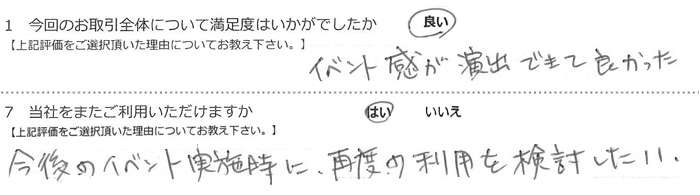 1 今回のお取引全体について満足度はいかがでしたか 良い
【上記評価をご選択頂いた理由についてお教え下さい。】
イベント感が演出できて良かった
7 当社をまたご利用いただけますか はい いいえ
【上記評価をご選択頂いた理由についてお教え下さい。】
今後のイベント実施時に、再度の利用を検討したい。